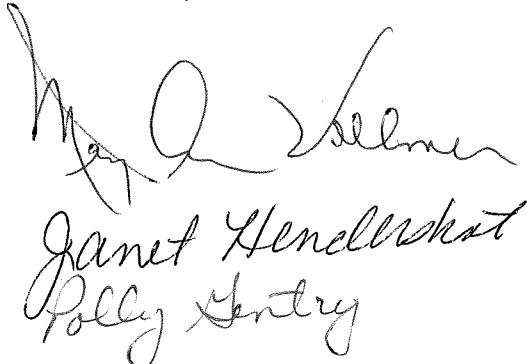 Mary Ann Vollmer
Janet Hendershot
Polly Gentry